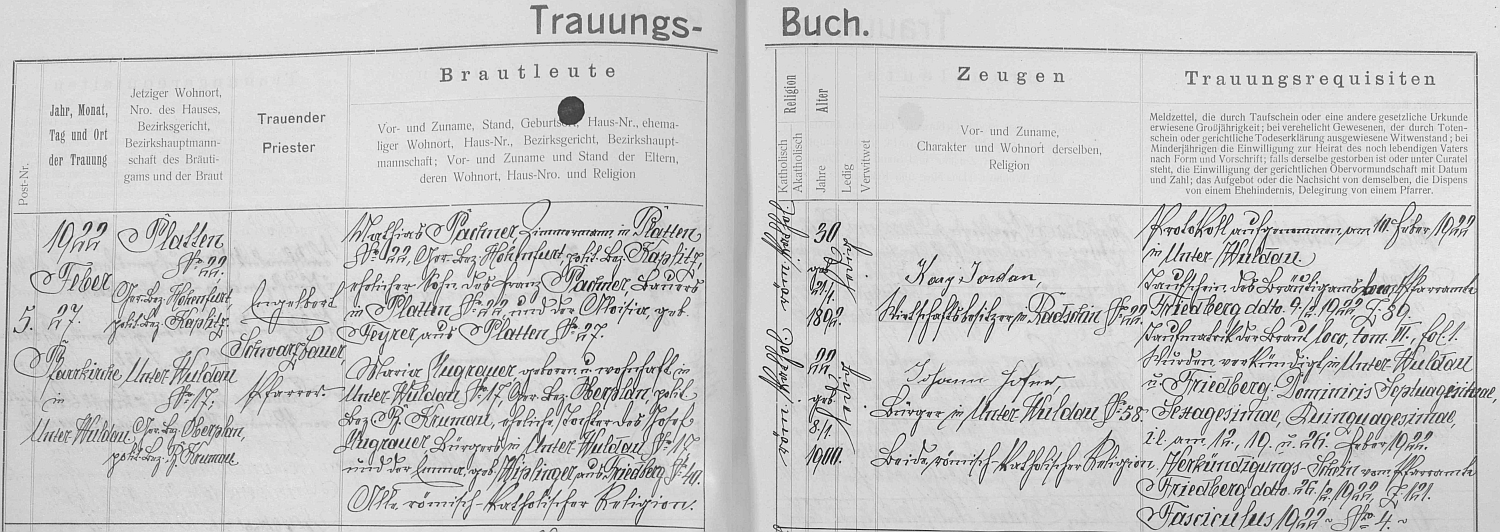 Trauungs-Buch.
Post-Nr.
Jahr, Monat,
Tag und Ort
der Trauung
Jetziger Wohnort,
Nro. des Hauses,
Bezirksgericht,
Bezirkshauptmann-
schaft des Bräuti-
gams und der Braut
Trauender
Priester
Brautleute
Vor- und Zuname, Stand, Geburtsort, Haus-Nr., ehema-
liger Wohnort, Haus-Nr., Bezirksgericht, Bezirkshaupt-
mannschaft; Vor- und Zuname und Stand der Eltern,
deren Wohnort, Haus-Nro. und Religion
Religion
Katholisch
Akatholisch
Alter
Jahre
Ledig
Verwitwet
Zeugen
Vor- und Zuname,
Charakter und Wohnort derselben,
Religion
Trauungsrequisiten
Meldzettel, die durch Taufschein oder eine andere gesetzliche Urkunde
erwiesene Großjährigkeit; bei verehelicht Gewesenen, der durch Toten-
schein oder gerichtliche Todeserklärung ausgewiesene Witwenstand; bei
Minderjährigen die Einwilligung zur Heirat des noch lebendigen Vaters
nach Form und Vorschrift; falls derselbe gestorben ist oder unter Curatel
steht, die Einwilligung der gerichtlichen Obervormundschaft mit Datum
und Zahl; das Aufgebot oder die Nachsicht von demselben, die Dispens
von einem Ehehindernis, Delegirung von einem Pfarrer.
5.
1922
Feber
27.
Pfarrkirche
in
Unter Wuldau
Platten
No 22.
Ger. Bez. Hohenfurt
polit. Bez. Kaplitz.
Unter Wuldau
No 17,
Ger. Bez. Oberplan,
polit. Bez. B. Krumau
Engelbert
Schwarzbauer
Pfarrer.
Mathias Pachner Zimmermann in Platten
No 22, Ger. Bez. Hohenfurt, polit. Bez. Kaplitz,
ehelicher Sohn des Franz Pachner Bauers
in Platten No 22 und der Aloisia geb.
Feyrer aus Platten No 27.
Maria Pugrauer geboren u. wohnhaft in
Unter Wuldau No 17, Ger. Bez. Oberplan, polit.
Bez. B. Krumau, eheliche Tochter des Josef
Pugrauer, Bürgers in Unter Wuldau No 17
und der Emma, geb. Wiesinger aus Friedberg No 40.
Alle römisch-katholischer Religion.
30
geb.
21/1.
1892.
ledig
22
geb.
8/1.
1900.
ledig
Jordan,
Wirtschaftsbesitzer in No 22.
Johann Hofer,
Bürger in Unter Wuldau No 58.
Beide römisch-katholischer Religion.
Protokoll aufgenommen am 10. Feber 1922
in Unter Wuldau.
Taufschein des Bräutigams vom Pfarramte
Friedberg ddto. 9/2 1922 Z. 89.
Taufmatrik der Braut loco, tom. VI., fol. 1.
Wurden verkündigt in Unter Wuldau
u. Friedberg. Dominicis Septuagesimae,
Sexagesimae, Quinquagesimae,
i.e. am 12., 19. u. 26. Feber 1922.
Verkündigungs-Schein vom Pfarramte
Friedberg ddto. 26/2 1922 Z. 121.
Fasciculus 1922 No. 4.